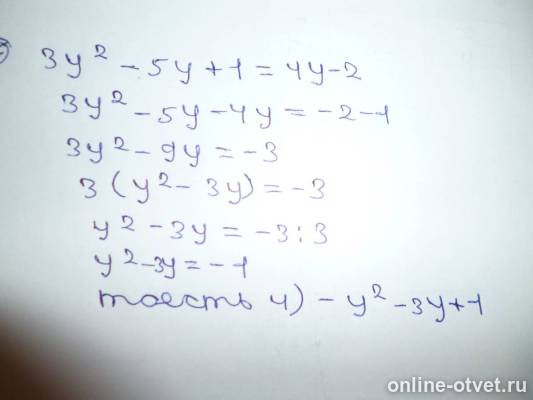 3y² - 5y + 1 = 4y - 2
3y² - 5y - 4y = -2 - 1
3y² - 9y = -3
3(y² - 3y) = -3
y² - 3y = -3 : 3
y² - 3y = -1
тоесть 4) - y² - 3y + 1
online-otvet.ru